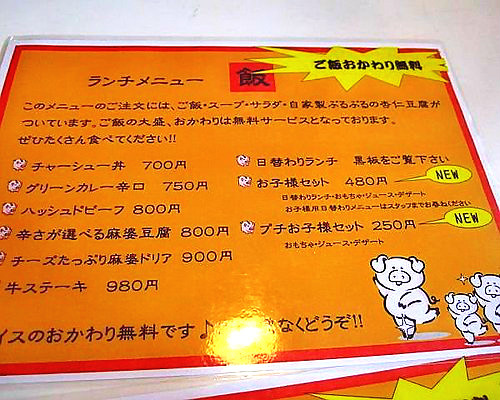 ご飯おかわり無料
ランチメニュー 飯
このメニューのご注文には、ご飯・スープ・サラダ・自家製ぷるぷるの杏仁豆腐が
ついています。ご飯の大盛、おかわりは無料サービスとなっております。
ぜひたくさん食べてください!!
チャーシュー丼 700円
グリーンカレー辛口 750円
ハッシュドビーフ 800円
辛さが選べる麻婆豆腐 800円
チーズたっぷり麻婆ドリア 900円
牛ステーキ 980円
日替わりランチ 黒板をご覧下さい
お子様セット 480円 NEW
日替わりランチ・おもちゃ・ジュース・デザート
お子様用日替わりメニューはスタッフまでお尋ねください
プチお子様セット 250円 NEW
おもちゃ・ジュース・デザート
イスのおかわり無料です♪ なくどうぞ!!